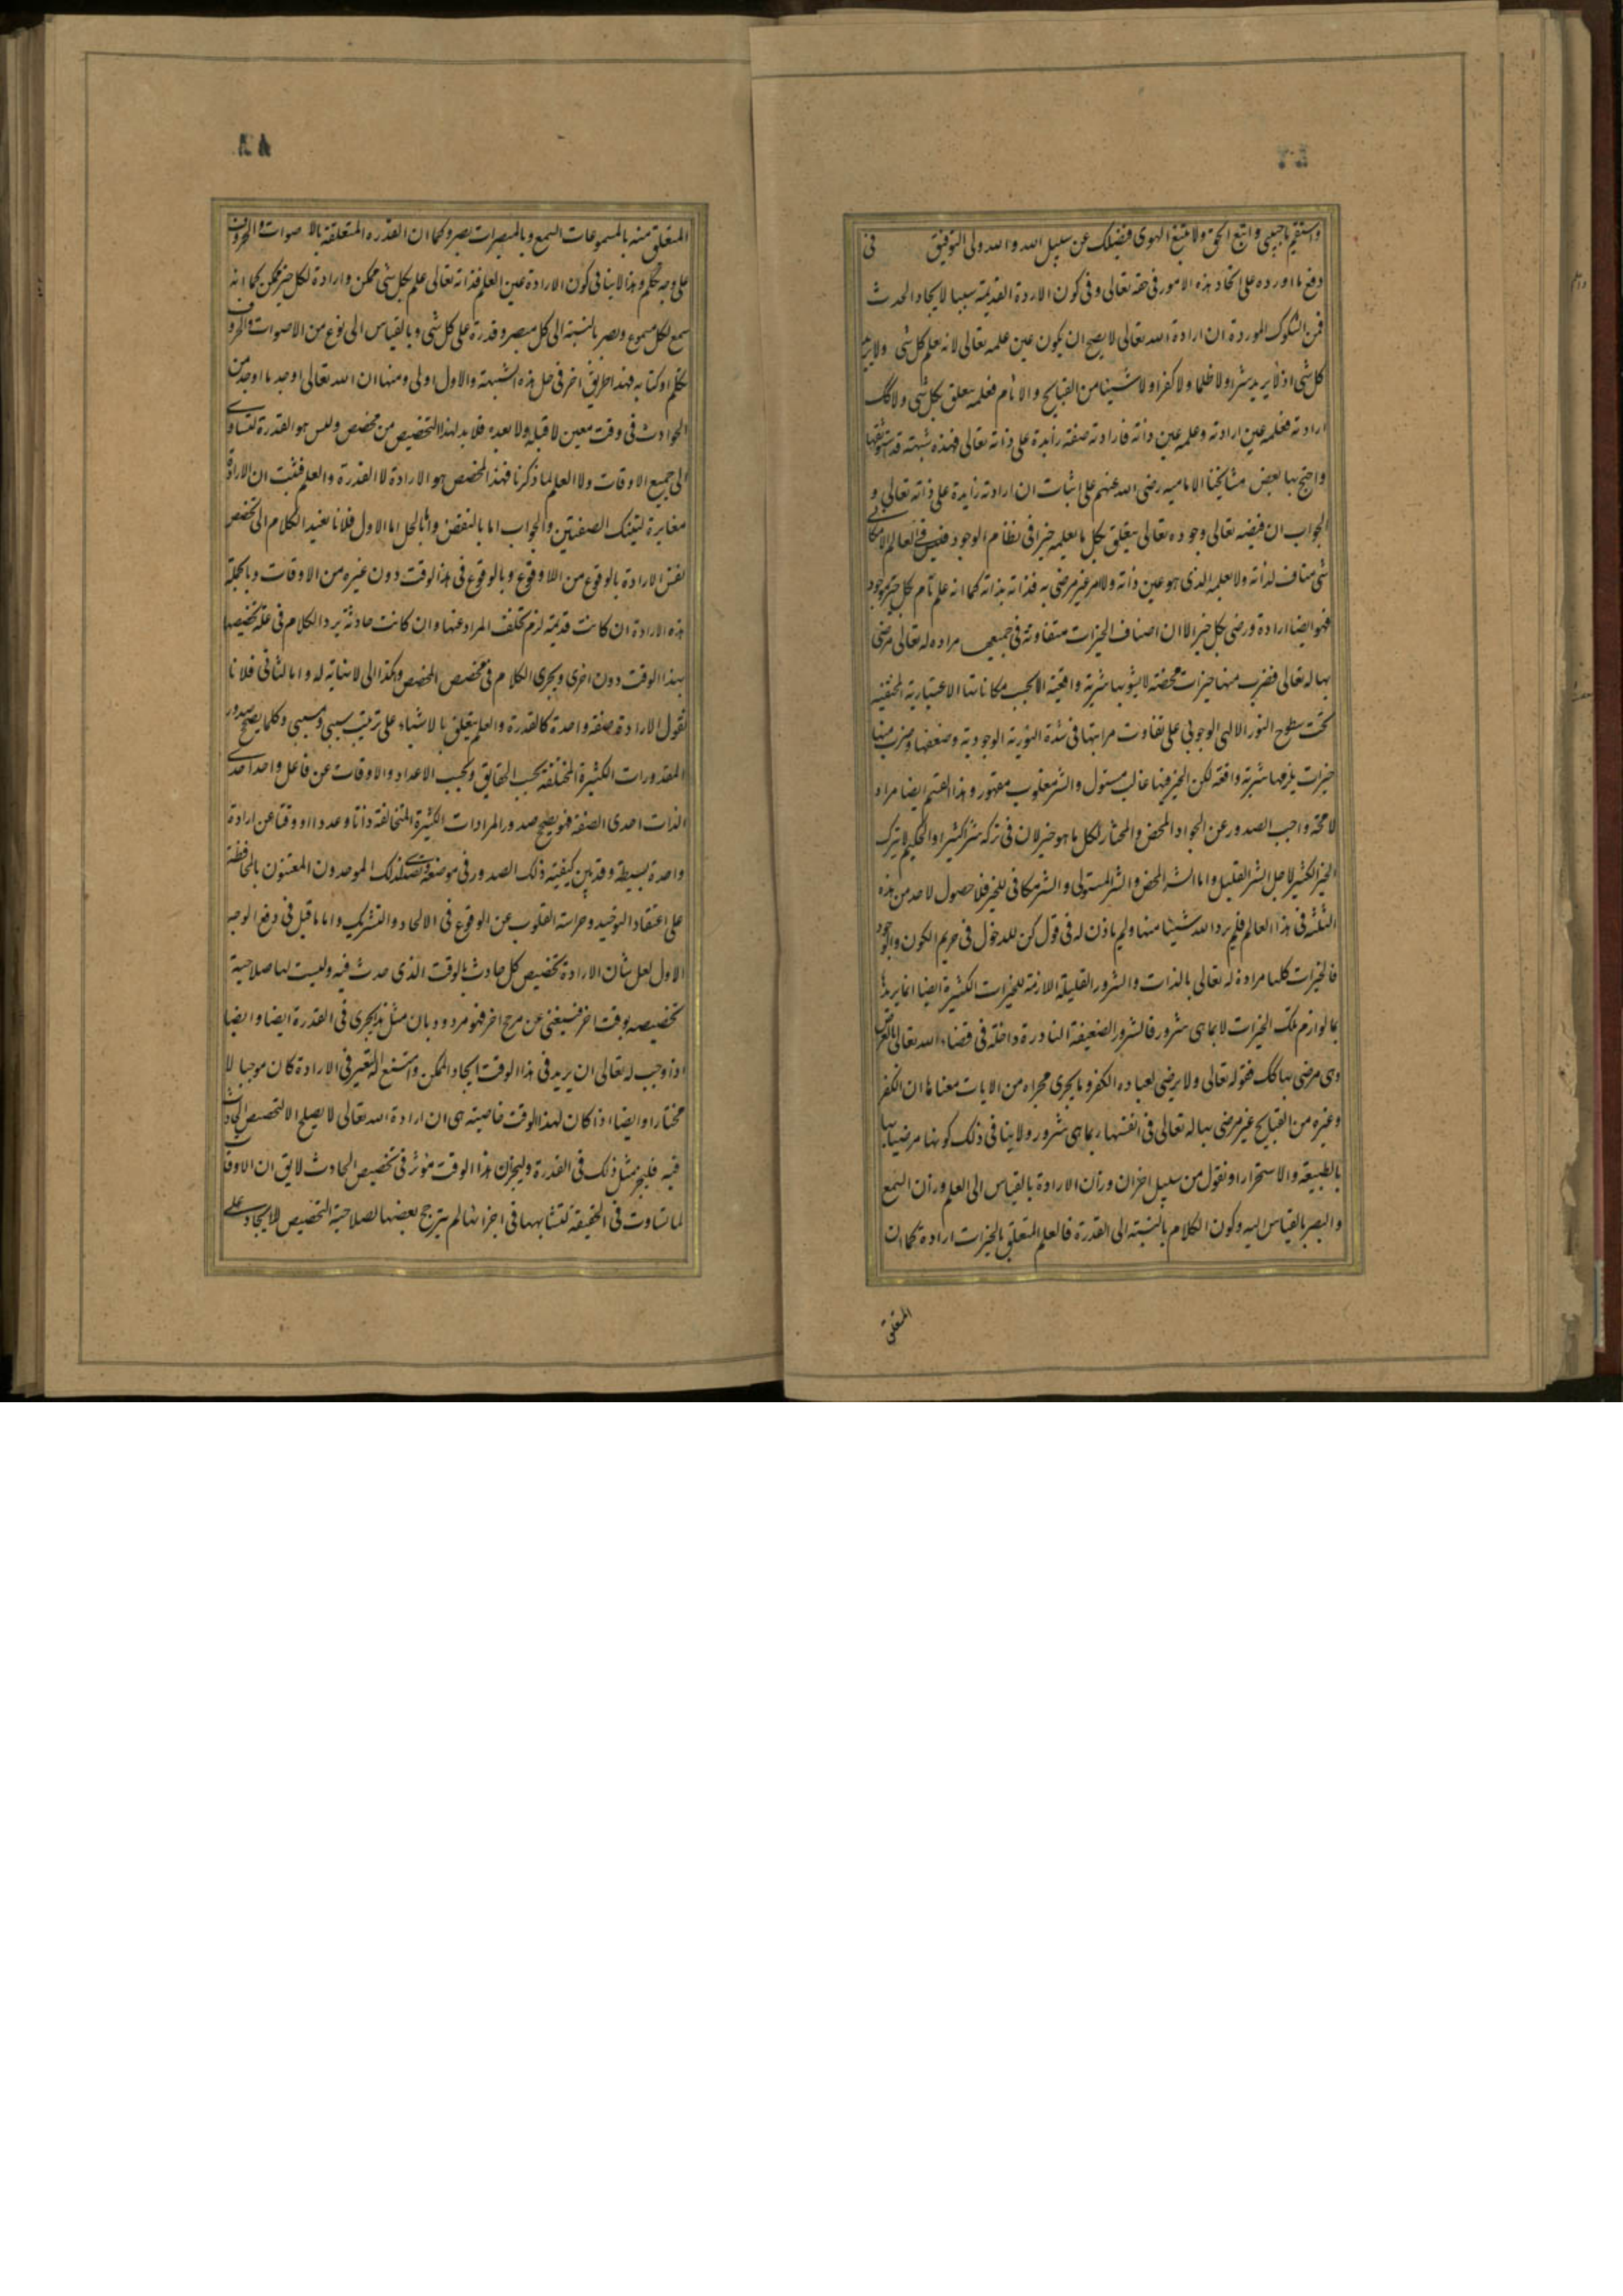 واستقم یا حبیبی واتبع الحق ولا تتبع الهوی فیضلک عن سبیل الله والله ولی التوفیق فی
دفع ما اورده علی اتحاد هذه الامور فی حقه تعالی وفی کون الاردة القدیمة سببا لایجاد الحدث
فمن الشکوک الموردة ان ارادة الله تعالی لا یصح ان یکون عین علمه تعالی لانه یعلم کل شی ولا یرید
کل شی اذ لا یرید شرا ولا ظلما ولا کفرا ولا شیئا من القبایح والاثام فعلمه یتعلق بکل شی ولا کک
ارادته فعلمه عین ارادته وعلمه عین ذاته فارادته صفة زایدة علی ذاته تعالی فهذه شبهة قد استوثقها
واحتج بها بعض مشایخنا الامامیه رضی الله عنهم علی اثبات ان ارادته زایدة علی ذاته تعالی و
الجواب ان فیضه تعالی وجوده تعالی یتعلق بکل ما یعلمه خیرا فی نظام الوجود فلیس فی العالم الامکانی
شی مناف لذاته ولا لعلمه الذی هو عین ذاته ولا امر غیر مرضی به فذاته بذاته کما انه علم تام بکل خیر موجود
فهو ایضا ارادة ورضی بکل خیر الا ان اصناف الخیرات متفاوتة فی جمیعها مراده له تعالی مرضی
بها له تعالی فضرب منها خیرات محضة لا یشوبها شریة واقعیة الا بحسب مکاناتها الاعتباریة المختفیه
تحت سطوح النور الالهی الوجوبی علی تفاوت مراتبها فی شدة النوریة الوجودیة وضعفها وضرب منها
خیرات یلزمها شریة واقعة لکن الخیر فیها غالب مستول والشر مغلوب مقهور وهذا القسم ایضا مراد
لا محة واجب الصدور عن الجواد المحض والمختار لکل ما هو خیر لان فی ترکه شرا کثیرا والحکیم لا یترک
الخیر الکثیر لاجل الشر القلیل واما الشر المحض والشر المستولی والشر مکافی للخیر فلا حصول لاحد من هذه
الثلثة فی هذا العالم فلم یرد الله شیئا منها ولم یاذن له فی قول کن للدخول فی حریم الکون والوجود
فالخیرات کلها مرادة له تعالی بالذات والشرور القلیلة اللازمة للخیرات الکثیرة ایضا انما یریدها
بما لوازم تلک الخیرات لا بما هی شرور فالشرور الضعیفة النادرة داخلة فی قضاء الله تعالی بالعرض
وهی مرضی بها کک فقوله تعالی ولا یرضی لعباده الکفر وما یجری مجراه من الایات معناها ان الکفر
وغیره من القبایح غیر مرضی بها له تعالی فی انفسها وبما هی شرور ولا ینافی ذلک کونها مرضیا بها
بالطبیعة والاستجرار او نقول من سبیل اخر ان وزان الارادة بالقیاس الی العلم وزان السمع
والبصر بالقیاس الیه وکون الکلام بالنسبة الی القدرة فالعلم المتعلق بالخیرات ارادة کما ان
المتعلق
المتعلق منه بالمسموعات السمع وبالمبصرات بصر وکما ان القدره المتعلقة بالاصوات والحروف
علی وجه تکلم وهذا لا ینافی کون الارادة عین العلم فذاته تعالی علم بکل شی ممکن وارادة لکل خیر ممکن کما انه
سمع لکل مسموع وبصر بالنسبة الی کل مبصر وقدرة علی کل شی وبالقیاس الی نوع من الاصوات والحروف
تکلم او کتابه فهذا طریق اخر فی حل هذه الشبهة والاول اولی ومنها ان الله تعالی اوجد ما اوجد من
الحوادث فی وقت معین لا قبله ولا بعده فلا بد لهذا التخصیص من مخصص ولیس هو القدرة لتساوی
الی جمیع الاوقات ولا العلم لما ذکرنا فهذا المخصص هو الارادة لا القدرة والعلم فثبت ان الارادة
مغایرة لتینک الصفتین والجواب اما بالنقض واما بالحل اما الاول فلانا نعید الکلام الی تخصص
نفس الارادة بالوقوع من اللاوقوع وبالوقوع فی هذا الوقت دون غیره من الاوقات وبالجملة
هذه الارادة ان کانت قدیمة لزم تخلف المراد عنها وان کانت حادثة یرد الکلام فی علة تخصیصها
بهذا الوقت دون اخری ویجری الکلام فی تخصیص المخصص وهکذا الی لا نهایة له واما الثانی فلانا
نقول الارادة صفة واحدة کالقدرة والعلم یتعلق بالاشیاء علی ترتیب سببی ومسببی وکلما یصح صدور
المقدورات الکثیرة المختلفة بحسب الحقایق وبحسب الاعداد والاوقات عن فاعل واحد احدی
الذات احدی الصفة فهو یصحح صدور المرادات الکثیرة المتخالفة ذاتا وعددا ووقتا عن ارادة
واحدة بسیطة وقد بین کیفیة ذلک الصدور فی موضعه وتصدی لذلک الموحدون المعتنون بالمحافظة
علی اعتقاد التوحید وحراسة القلوب عن الوقوع فی الالحاد والتشریک واما ما قیل فی دفع الوجه
الاول لعل شان الارادة تخصیص کل حادث بالوقت الذی حدث فیه ولیست لها صلاحیة
تخصیصه بوقت اخر فیستغنی عن مرجح اخر فهو مردود بان مثل هذا یجری فی القدرة ایضا وایضا
اذا وجب له تعالی ان یرید فی هذا الوقت ایجاد الممکن وامتنع له التغیر فی الارادة کان موجبا لا
مختارا وایضا اذا کان لهذا الوقت خاصیة هی ان ارادة الله تعالی لا یصلح الا لتخصص الحادث
فیه فلیجز مثل ذلک فی القدرة ولیجز ان هذا الوقت مؤثر فی تخصیص الحادث لا یق ان الاوقات
لما تساوت فی الحقیقة لتشابهها فی اجزائها لم یترجح بعضها لصلاحیة التخصیص للایجاد علی